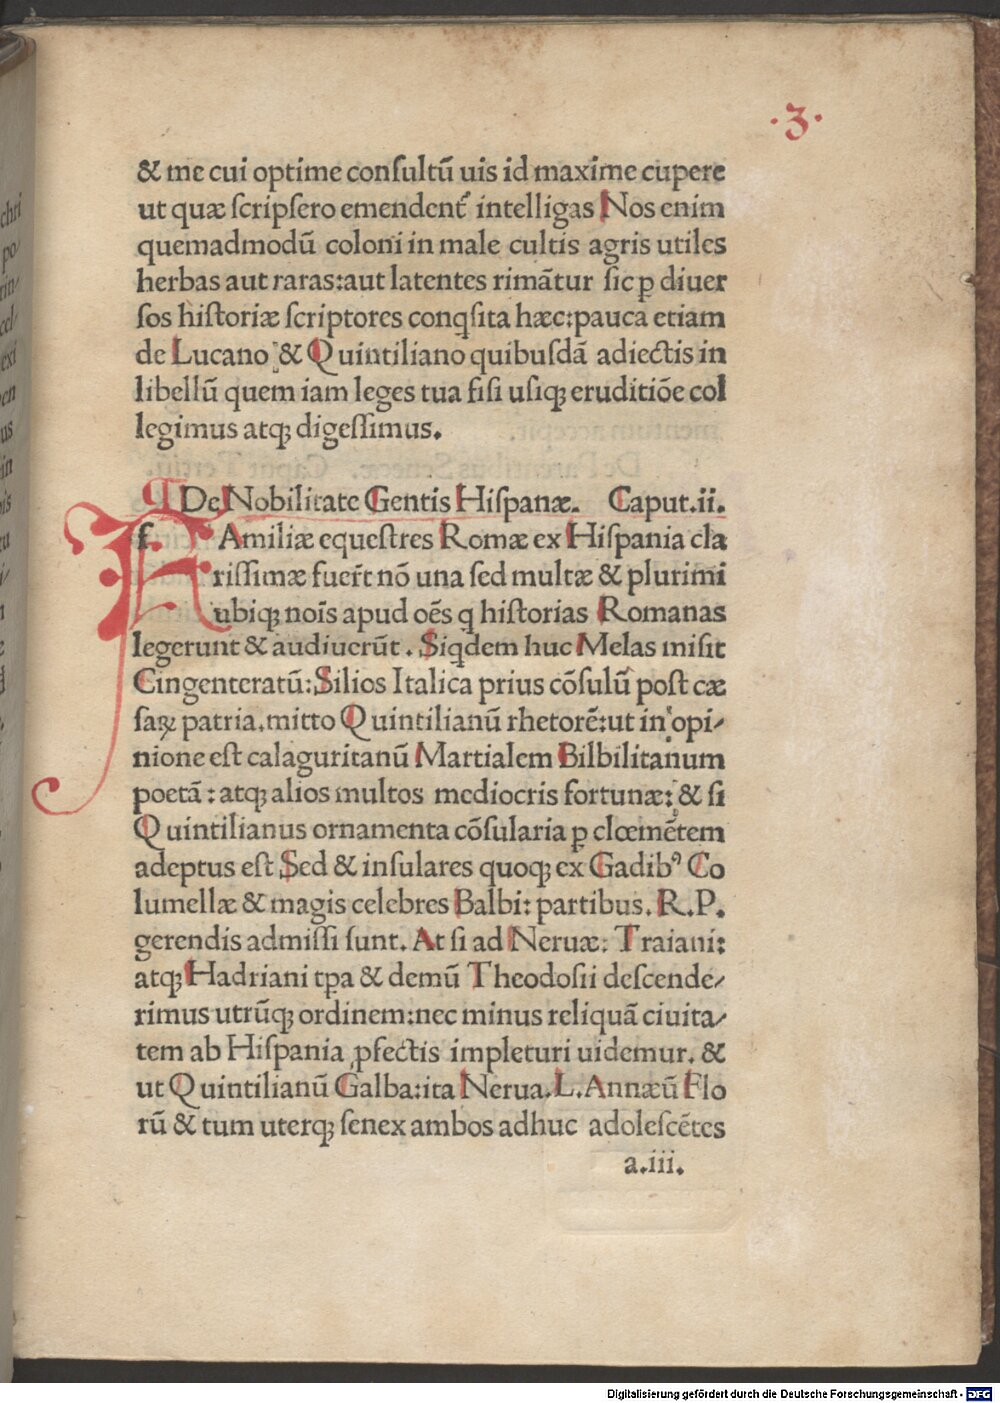 ·3·
& me cui optime conſultū uis id maxime cupere
ut quæ ſcripſero emendent᷑ intelligas Nos enim
quemadmodū coloni in male cultis agris utiles
herbas aut raras:aut latentes rimātur ſic ꝑ diuer
ſos hiſtoriæ ſcriptores conqſita hæc:pauca etiam
de Lucano & Quintiliano quibuſdā adiectis in
libellū quem iam leges tua fiſi uſiqꝫ eruditiōe col
legimus atqꝫ digeſſimus.
¶ De Nobilitate Gentis Hiſpanæ. Caput.ii.
f Amiliæ equeſtres Romæ ex Hiſpania cla
riſſimæ fuer̄t nō una ſed multæ & plurimi
ubiqꝫ noīs apud oēs q hiſtorias Romanas
legerunt & audiuerūt. Siqdem huc Melas miſit
Cingenteratū:Silios Italica prius cōſulū poſt cæ
ſaꝝ patria.mitto Quintilianū rhetorē:ut in opi⸗
nione eſt calaguritanū Martialem Bilbilitanum
poetā:atqꝫ alios multos mediocris fortunæ: & ſi
Quintilianus ornamenta cōſularia ꝑ clœmētem
adeptus eſt Sed & inſulares quoqꝫ ex Gadibꝰ Co
lumellæ & magis celebres Balbi: partibus. R.P.
gerendis admiſſi ſunt. At ſi ad Neruæ: Traiani:
atqꝫ Hadriani tꝑa & demū Theodoſii deſcende⸗
rimus utrūqꝫ ordinem:nec minus reliquā ciuita⸗
tem ab Hiſpania ꝓfectis impleturi uidemur. &
ut Quintilianū Galba:ita Nerua.L.Annæū Flo
rū & tum uterqꝫ ſenex ambos adhuc adoleſcētes
a.iii.
Digitalisierung gefördert durch die Deutsche Forschungsgemeinschaft - DFG